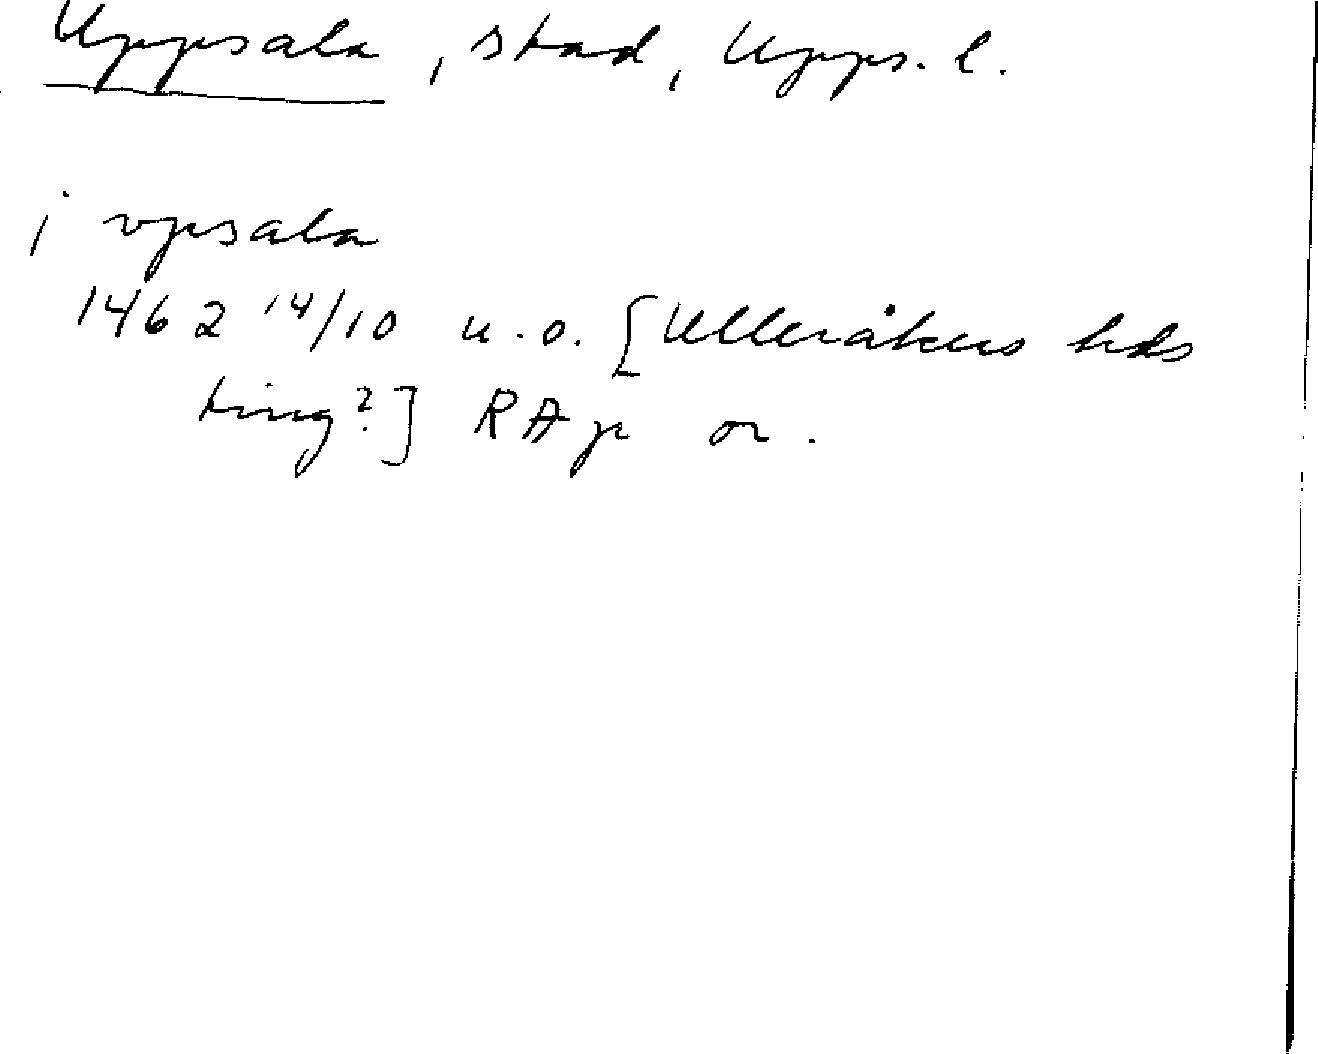 Uppsala, stad, Upps. l.
i vpsala
1462 14/10 u.o. [Ulleråkers hds
ting?] RAp or.